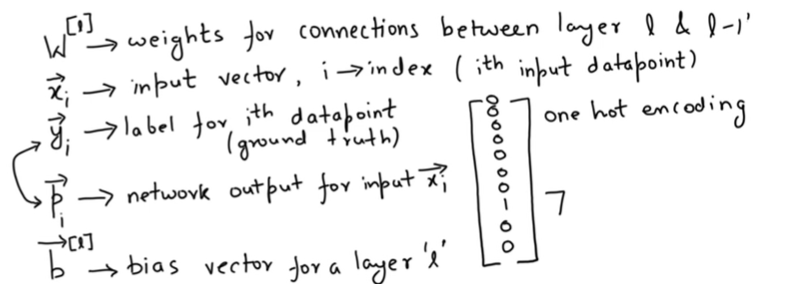 W^[l] → weights for connections between layer l & l-1'
x⃗_i → input vector, i → index ( ith input datapoint)
y⃗_i → label for ith datapoint
(ground truth)
p⃗_i → network output for input x⃗_i
b⃗^[l] → bias vector for a layer 'l'
[ 0 0 0 0 0 0 0 1 0 0 ] one hot encoding
7